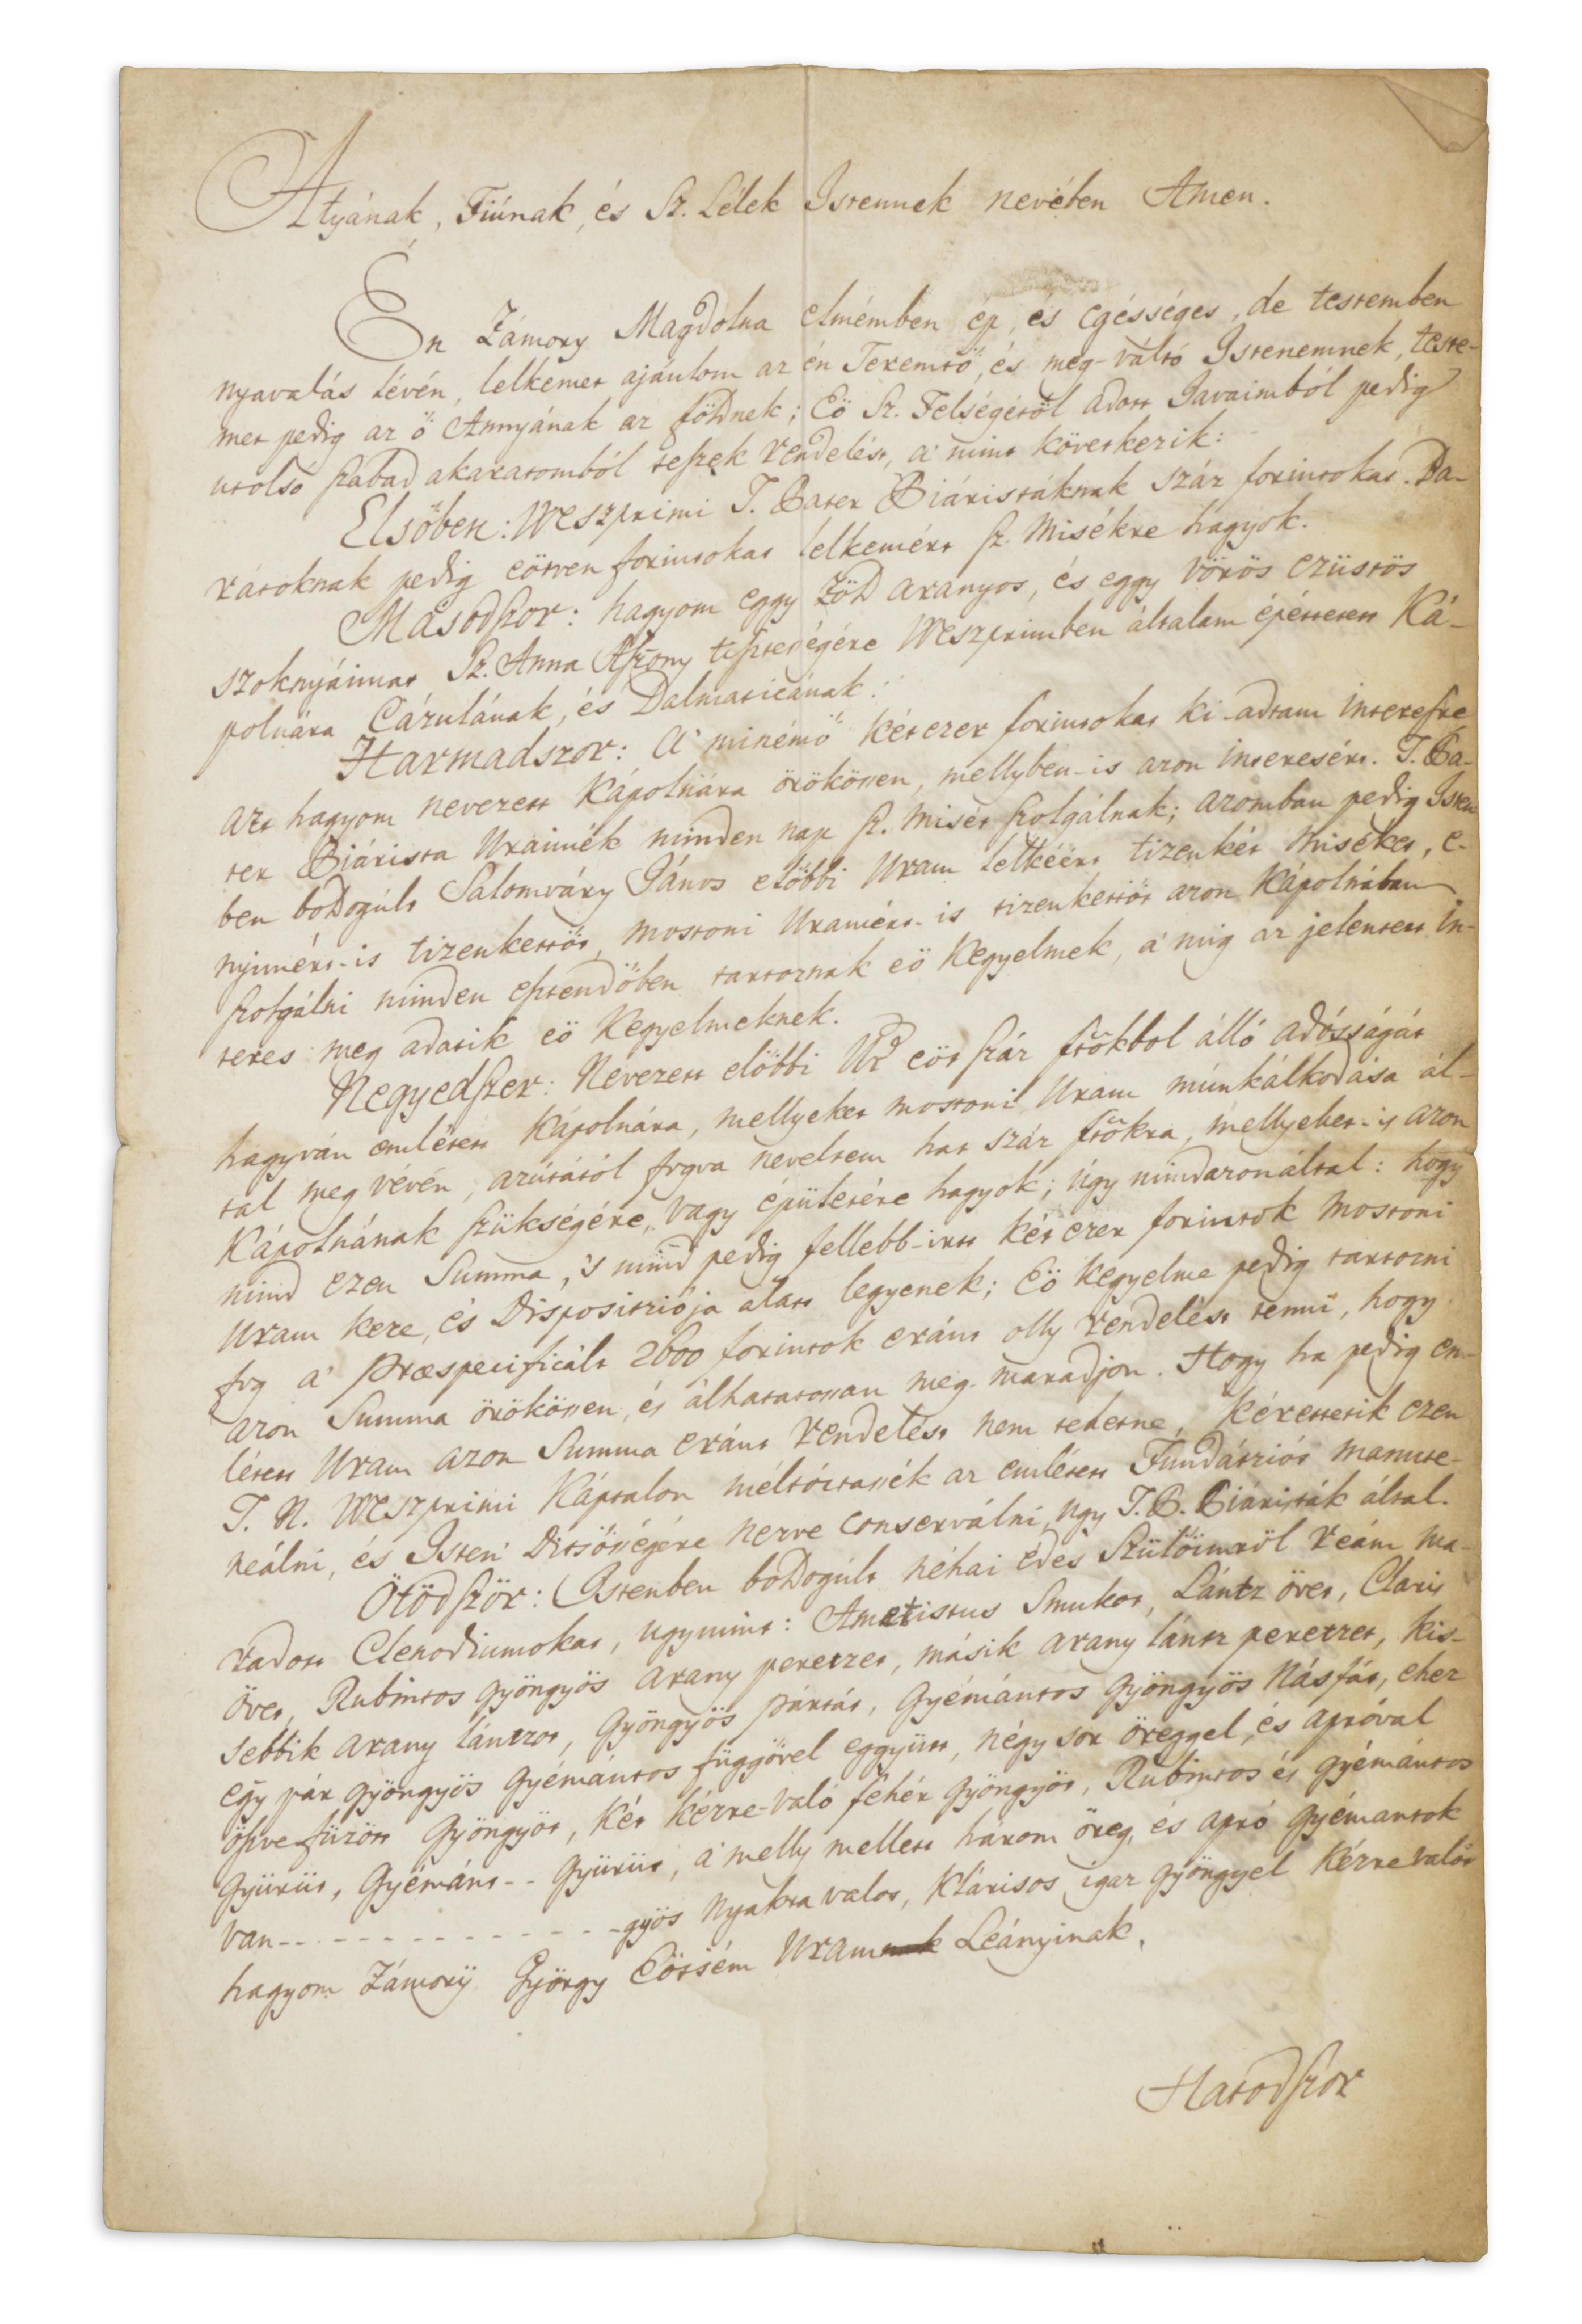 Atyának, Fiúnak, és Sz. Lélek Istennek nevében Amen.
Én Zámory Magdolna elmémben ép, és egésséges, de testemben
nyavalás lévén, lelkemet ajánlom az én Teremtő, és meg-váltó Istenemnek, teste-
met pedig az ő Annyának az földnek; Eö Sz. Felségétöl adott Javaimból pedig
utolsó szabad akaratomból teszek rendelést, a' mint következik:
Elsöben: Weszprimi T. Pater Piáristáknak száz forintokat. Ba-
rátoknak pedig eötven forintokat lelkemért sz. Misékre hagyok.
Másodszor: hagyom eggy zöld aranyos, és eggy vörös ezüstös
szoknyáimat Sz. Anna Aszony tisztességére Weszprimben általam épéttetett Ká-
polnára Cázulának, és Dalmaticának.
Harmadszor: A' minémő két ezer forintokat ki-adtam interesre
azt hagyom nevezett Kápolnára örökössen, mellyben-is azon interesért. T. Pa-
ter Piárista Uraimék minden nap sz. Misét szolgálnak; azomban pedig Isten
ben boldogúlt Salomváry János elöbbi Uram lelkéért tizenkét Miséket, e-
nyimért-is tizenkettőt, mostoni Uramért-is tizenkettöt azon Kápolnában
szolgálni minden esztendöben tartoznak eö Kegyelmek, a' míg az jelentett in-
teres meg adatik eö Kegyelmeknek.
Negyedszer: Nevezett elöbbi Ur eöt száz ftokbol álló adósságát
hagyván emlétett Kápolnára, mellyeket mostoni Uram múnkálkodása ál-
tal meg vévén, azútától fogva neveltem hat száz ftokra, mellyeket-is azon
Kápolnának szükségére, vagy épületére hagyok; úgy mindazonáltal: hogy
mind ezen Summa, 's mind pedig fellebb-irtt két ezer forintok mostoni
Uram keze, és Dispositziója alatt legyenek; Eö kegyelme pedig tartozni
fog a' præspecificált 2600 forintok eránt olly rendelést tenni, hogy
azon Summa örökössen, és álhatatossan meg-maradjon. Hogy ha pedig em-
létett Uram azon Summa eránt rendelést nem tehetne, kérettetik ezen
T. N. Weszprimi Káptalon méltóztassék az emlétett Fundátziót manute-
neálni, és Isten' Ditsösségére nézve conserválni, ugy T. P. Piáristák által.
Ötödször: Istenben boldogúlt néhai édes Szülöimröl reám ma-
radott Clenodiumokat, ugymint: Ametistus Smukot, Lántz övet, Claris
övet, Rubintos gyöngyös arany peretzet, másik arany lántz peretzet, kis-
sebbik arany lántzot, gyöngyös pártát, gyémántos gyöngyös Násfát, ehez
egy pár gyöngyös gyémántos függövel eggyütt, négy sor öreggel, és apróval
öszve füzött gyöngyöt, két kézre-való fehér gyöngyöt, Rubintos és gyémántos
gyürüt, Gyémánt-- gyürüt, a' melly mellett három öreg, és apró gyémantok
van-- - - - - - - - - - - - -gyös nyakra valot, Klárisos igaz gyöngyel kézre valót
hagyom Zámorÿ György Eötsém Uram Leányinak.
Hatodszor